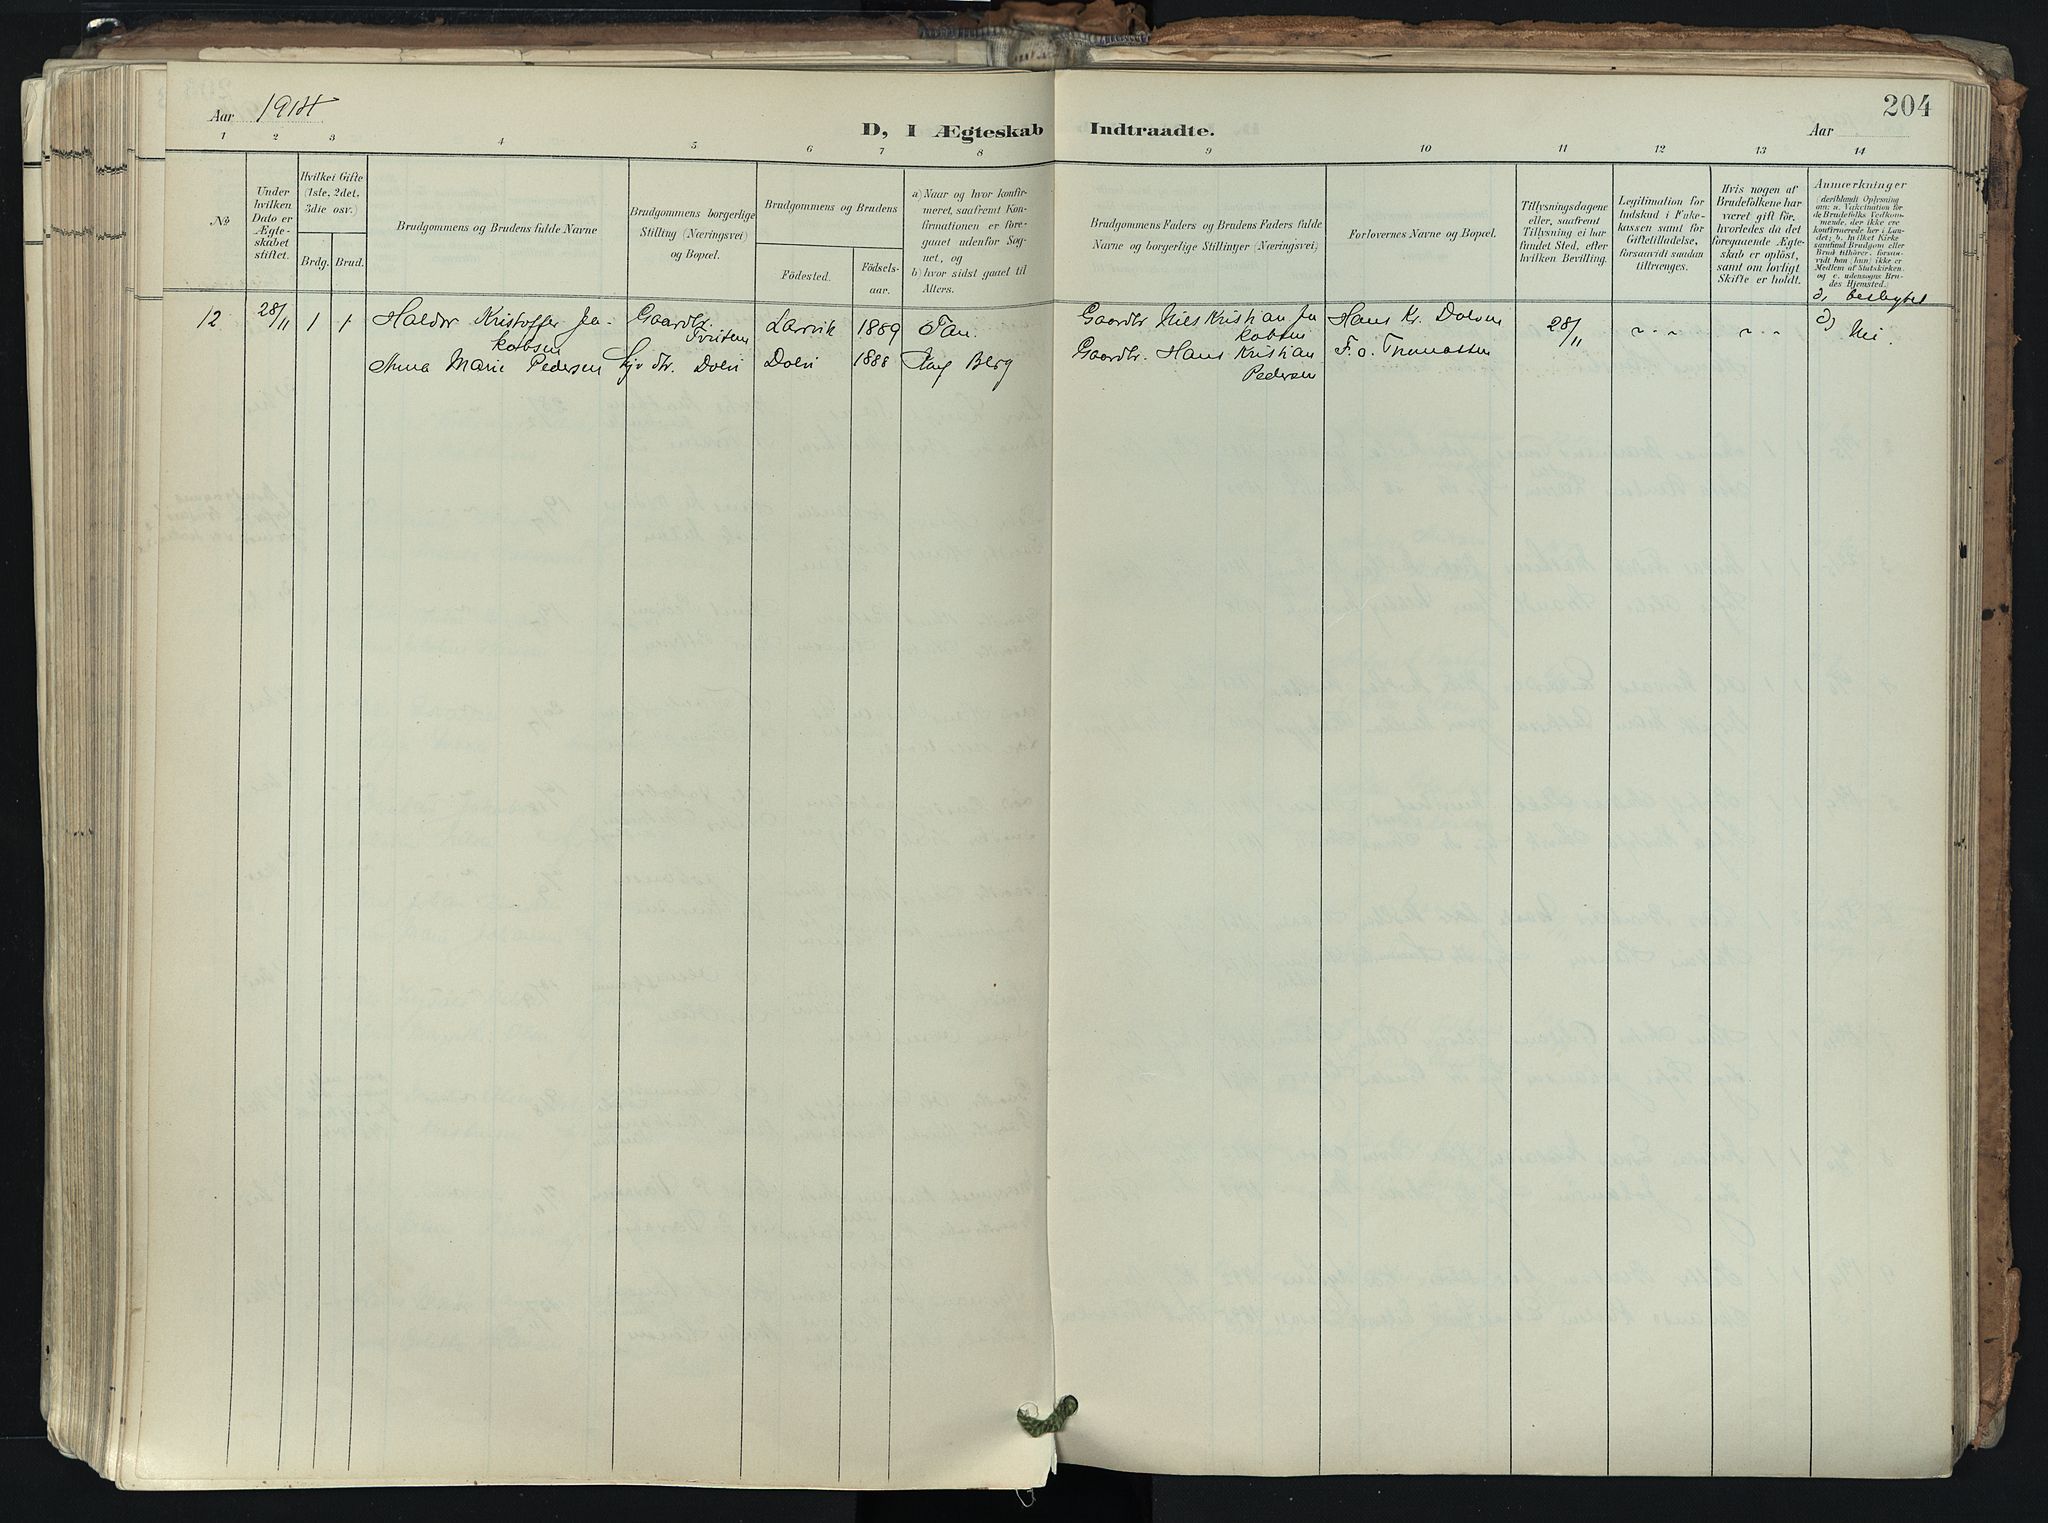 204
Aar 1914
D, I Ægteskab Indtraadte.
Aar
1 2 3 4 5 6 7 8 9 10 11 12 13 14
No
Under hvilken Dato er Ægteskabet stiftet.
Hvilket Gifte (1ste, 2det, 3die osv.)
Brdg. Brud.
Brudgommens og Brudens fulde Navne
Brudgommens borgerlige Stilling (Næringsvei) og Bopæl.
Brudgommens og Brudens
Födested.
Födsels-aar.
a) Naar og hvor konfirmeret, saafremt Konfirmationen er foregaaet udenfor Sognet, og
b) hvor sidst gaaet til Alters.
Brudgommens Faders og Brudens Faders fulde Navne og borgerlige Stillinger (Næringsvei)
Forlovernes Navne og Bopæl.
Tillysningsdagene eller, saafremt Tillysning ei har fundet Sted, efter hvilken Bevilling.
Legitimation for Indskud i Enkekassen samt for Giftetilladelse, forsaavidt saadan tiltrænges.
Hvis nogen af Brudefolkene har været gift för, hvorledes da det foregaaende Ægteskab er oplöst, samt om lovligt Skifte er holdt.
Anmærkninger
(deriblandt Oplysning om: a. Vaccination for de Brudefolks Vedkommende, der ikke ere konfirmerede her i Landet; b. hvilket Kirkesamfund Brudgom eller Brud tilhörer, forsaavidt han (hun) ikke er Medlem af Statskirken, og c. udensogns Brudes Hjemsted.)
d, beslegtet
12 28/11 1 1 Haldor Kristoffer Ja- Gaardbr. Larvik 1889 Gaardbr Nils Kristian Ja Hans Kr. Dolven 28/11 " - " " - " d) Nei.
kobsen kobsen
Anna Marie Pedersen hjv dtr. 1888 Berg Gaardbr. Hans Kristian F. O. Thomassen
Pedersen